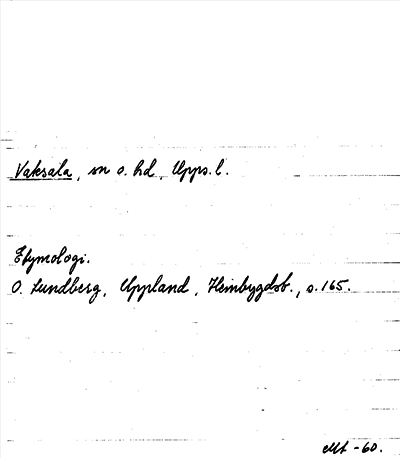 Vaksala, sn o. hd, Upps. l.
Etymologi.
O. Lundberg, Uppland, Hembygdsb., s. 165.
-60.